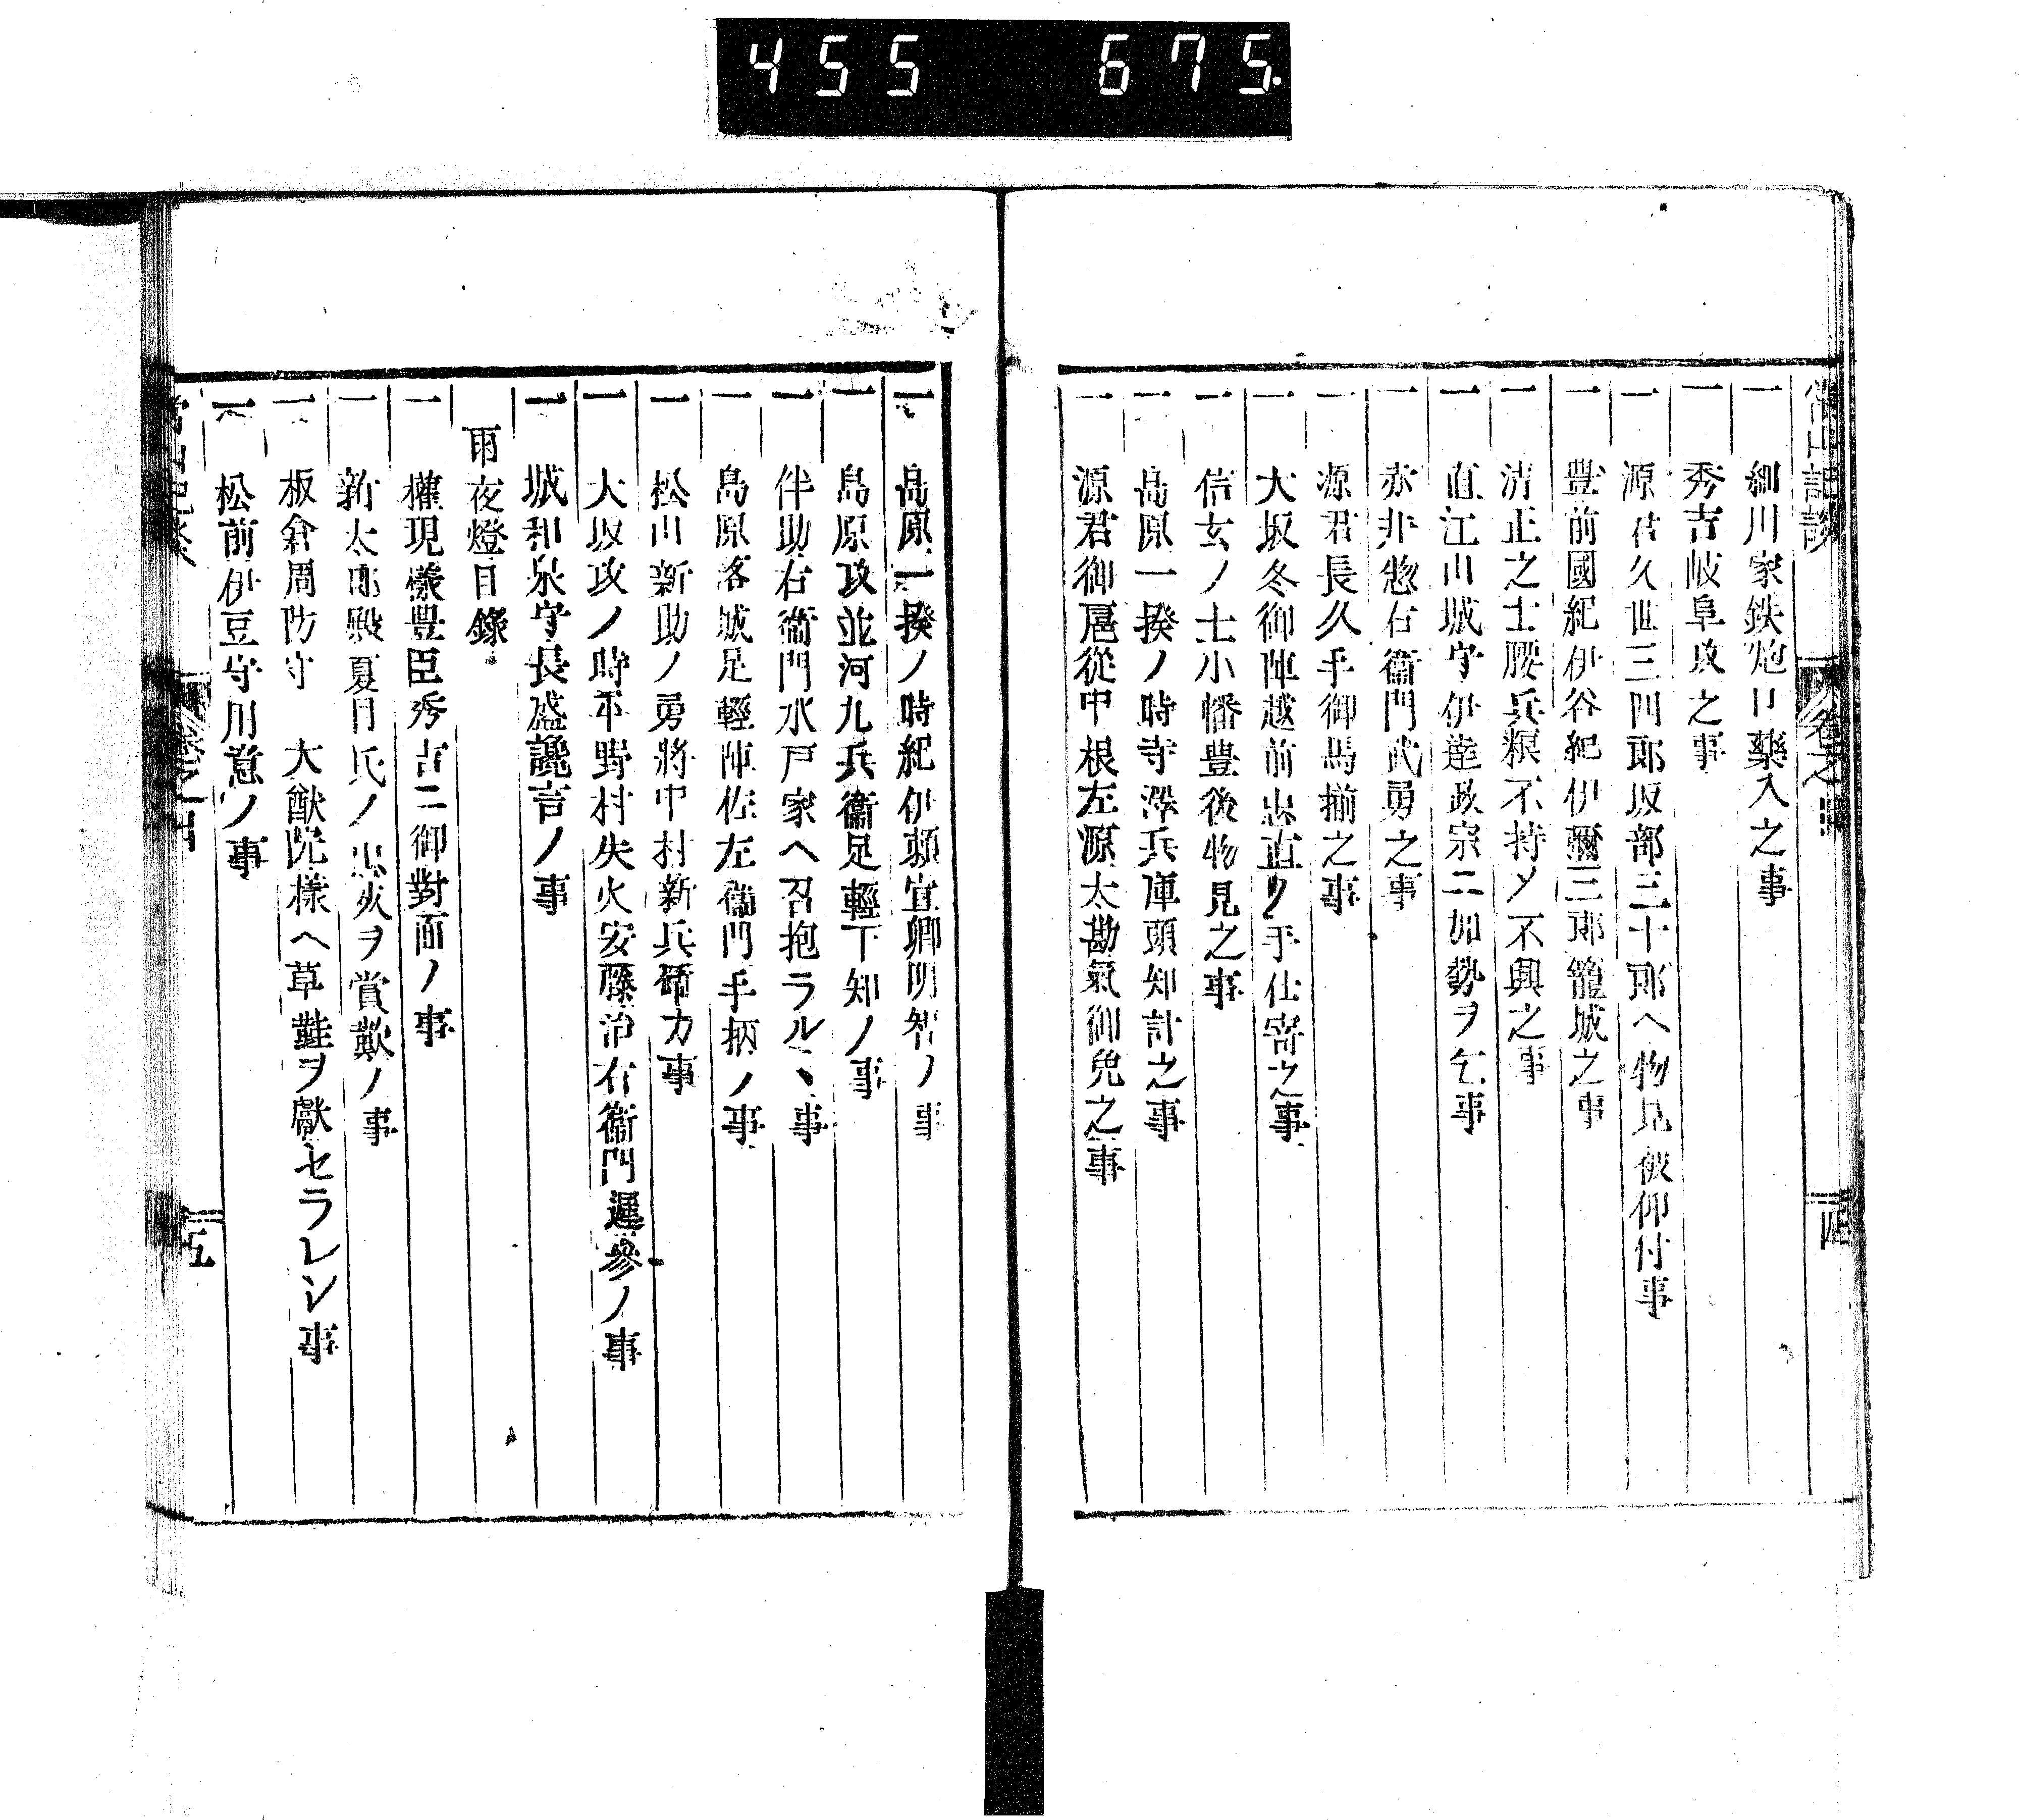 455 675.
常山記談 卷之四 四
一 細川家鉄炮口藥入之事
一 秀吉岐阜攻之事
一 源君久世三四郎坂部三十郎ヘ物見被仰付事
一 豊前國紀伊谷紀伊彌三郎籠城之事
一 清正之士腰兵粮不持メ不興之事
一 直江山城守伊達政宗ニ加勢ヲ乞事
一 赤井惣右衞門武勇之事
一 源君長久手御馬揃之事
一 大坂冬御陣越前忠直ノ手仕寄之事
一 信玄ノ士小幡豊後物見之事
一 島原一揆ノ時寺澤兵庫頭知計之事
一 源君御扈從中根左源太勘氣御免之事
一 島原一揆ノ時紀伊頼宣卿明智ノ事
一 島原攻並河九兵衞足輕下知ノ事
一 伴助右衞門水戸家ヘ召抱ラルヽ事
一 島原落城足輕陣佐左衞門手柄ノ事
一 松山新助ノ勇將中村新兵衞カ事
一 大坂攻ノ時平野村失火安藤治右衞門遲參ノ事
一 城和泉守長盛讒言ノ事
雨夜燈目錄
一 權現樣豊臣秀吉ニ御對面ノ事
一 新太郎殿夏目氏ノ忠死ヲ賞歎ノ事
一 板倉周防守 大猷院樣ヘ草鞋ヲ獻セラレシ事
一 松前伊豆守用意ノ事
常山記談 卷之四 五